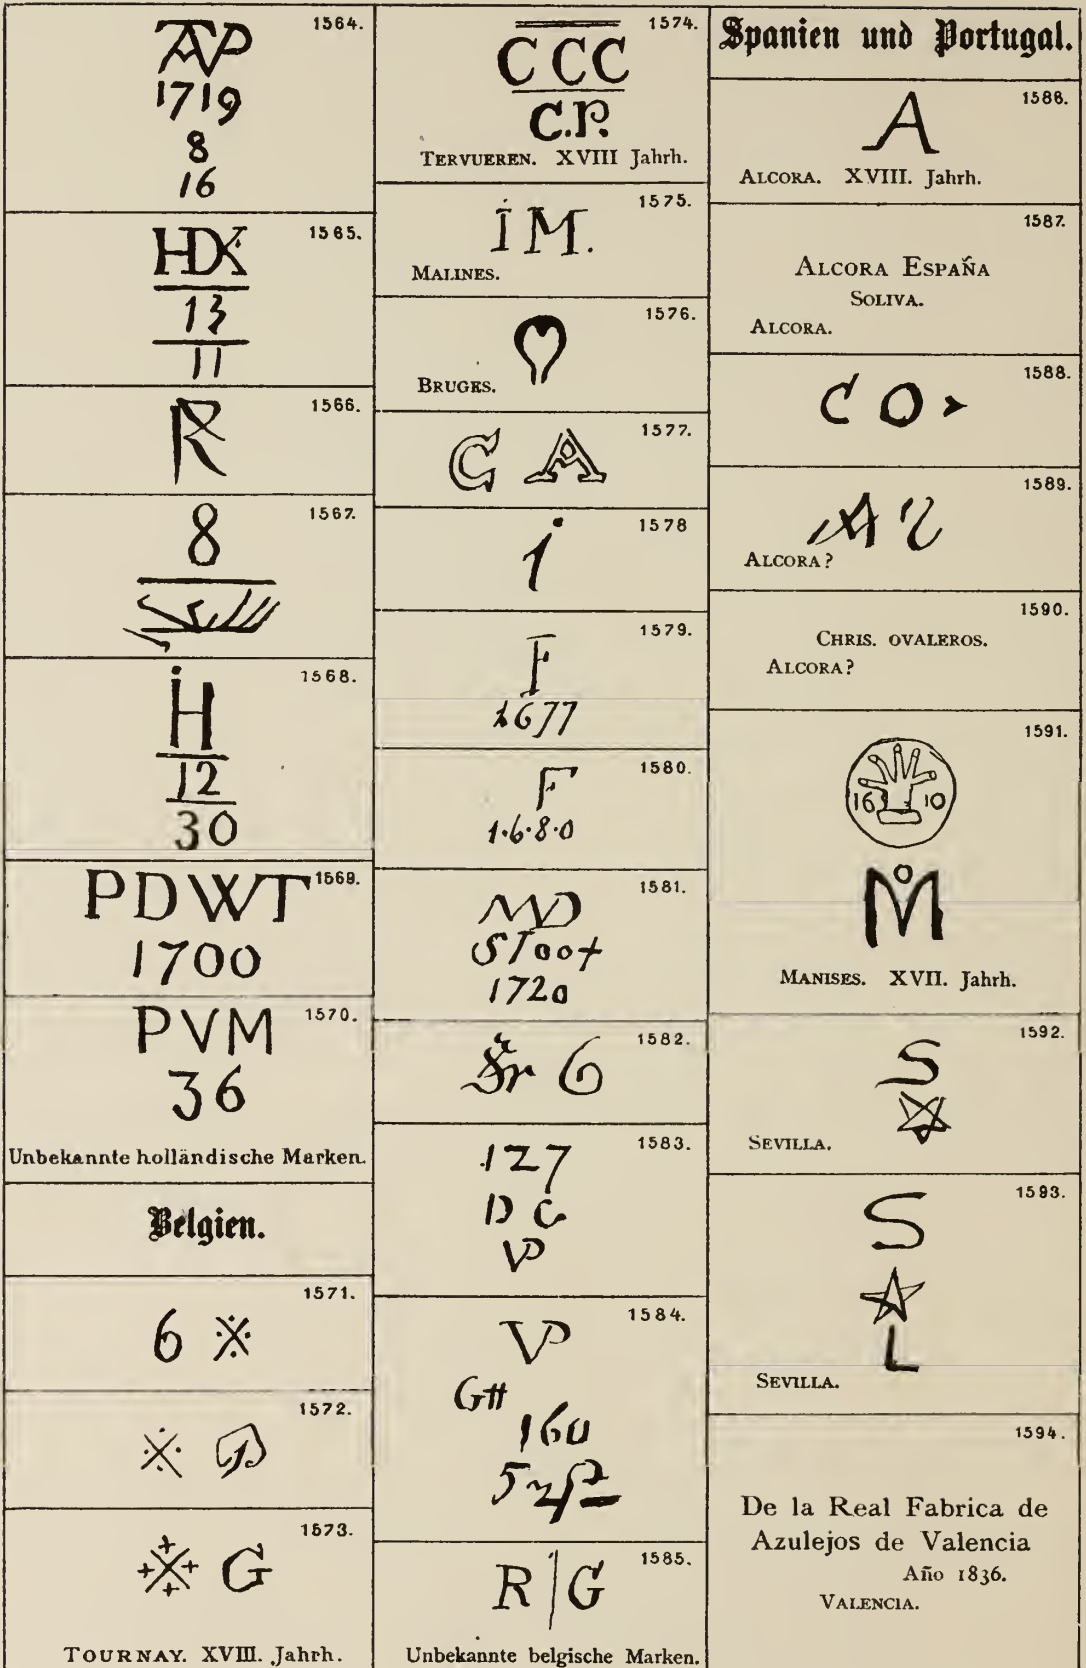 1564.
AP
1719
8
16
1565.
HDK
13
11
1566.
R
1567.
8
1568.
iH
12
30
1569.
PDWT
1700
1570.
PVM
36
Unbekannte holländische Marken.
Belgien.
1571.
6 ※
1572.
※
1573.
G
TOURNAY. XVIII. Jahrh.
1574.
C CC
C.P.
TERVUEREN. XVIII Jahrh.
1575.
iM.
MALINES.
1576.
BRUGES.
1577.
C A
1578
i
1579.
F
1677
1580.
F
1·6·8·0
1581.
MVD
1720
1582.
6
1583.
127
D G
VP
1584.
VP
160
1585.
R | G
Unbekannte belgische Marken.
Spanien und Portugal.
1586.
A
ALCORA. XVIII. Jahrh.
1587.
ALCORA ESPAÑA
SOLIVA.
ALCORA.
1588.
C O
1589.
ALCORA?
1590.
CHRIS. OVALEROS.
ALCORA?
1591.
16 10
M
MANISES. XVII. Jahrh.
1592.
S
SEVILLA.
1593.
S
L
SEVILLA.
1594.
De la Real Fabrica de
Azulejos de Valencia
Año 1836.
VALENCIA.